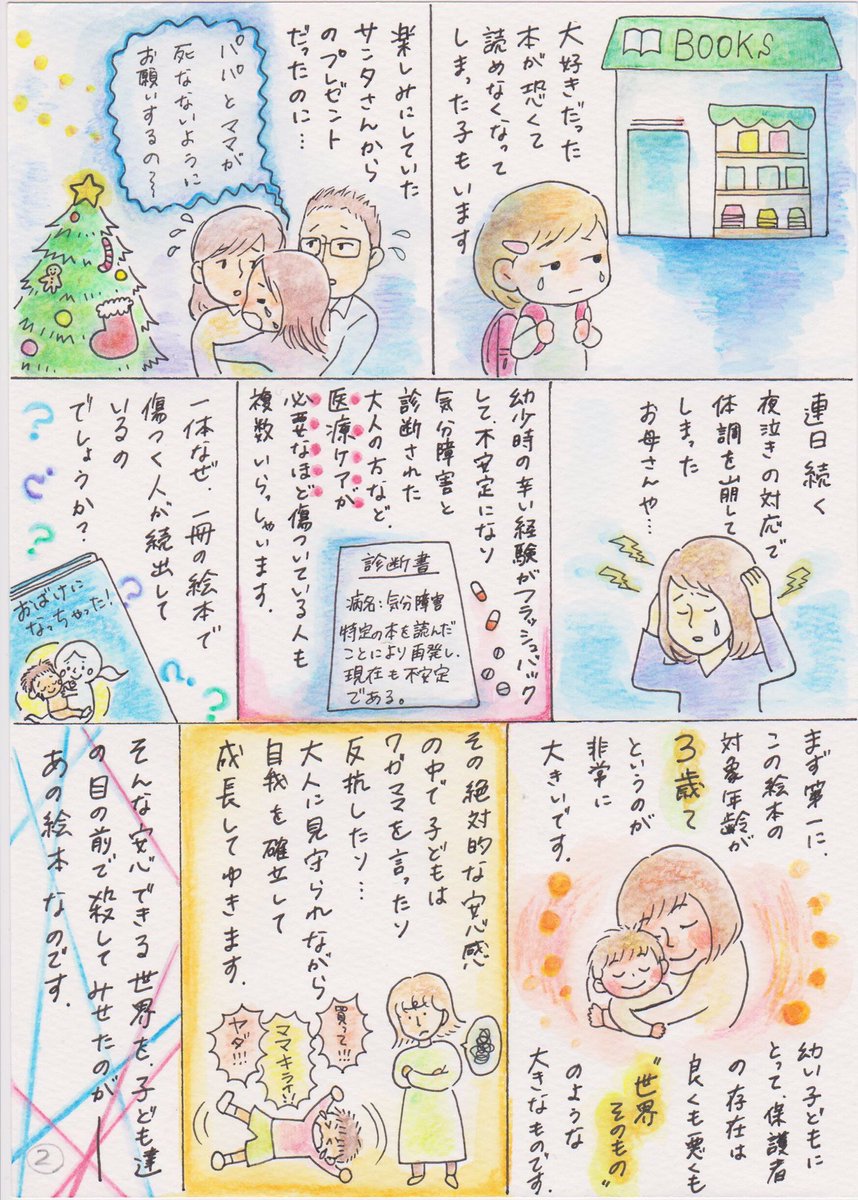 BOOKS
大好きだった
本が恐くて
読めなくなって
しまった子もいます
楽しみにしていた
サンタさんから
のプレゼント
だったのに…
パパとママが
死なないように
お願いするの〜
連日続く
夜泣きの対応で
体調を崩して
しまった
お母さんや…
幼少時の辛い経験がフラッシュバック
して、不安定になり
気分障害と
診断された
大人の方など、
医療ケアが
必要なほど傷ついている人も
複数いらっしゃいます。
診断書
病名:気分障害
特定の本を読んだ
ことにより再発し、
現在も不安定
である。
一体なぜ、一冊の絵本で
傷つく人が続出して
いるの
でしょうか?
おばけに
なっちゃった!
まず第一に、
この絵本の
対象年齢が
3歳〜
というのが
非常に
大きいです。
幼い子どもに
とって、保護者
の存在は
良くも悪くも
"世界
そのもの"
のような
大きなものです。
その絶対的な安心感
の中で子どもは
ワガママを言ったり
反抗したり…
大人に見守られながら
自我を確立して
成長してゆきます。
買って!!!
ママキライ!!
ヤダ!!!
そんな安心できる世界を、子ども達
の目の前で殺してみせたのが――
あの絵本なのです。
2